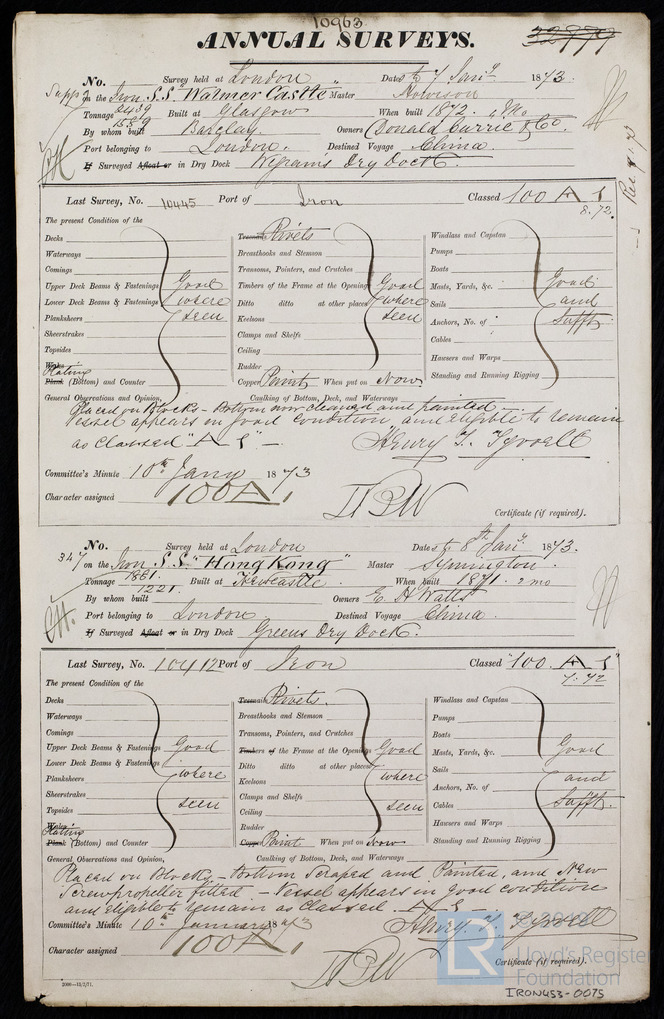 10963
ANNUAL SURVEYS. 32979
No. Survey held at London Date 7 Jany 1873.
on the Iron S.S. "Walmer Castle" Master
Tonnage 2439 1559 Built at Glasgow When built 1872.
By whom built Barclay Owners Donald Currie & Co.
Port belonging to London. Destined Voyage China.
If Surveyed Afloat or in Dry Dock Wigrams Dry Dock.
Last Survey, No. 10445 Port of Iron Classed 100 A 1
8.72.
The present Condition of the
Decks Treenails Rivets Windlass and Capstan
Waterways Breasthooks and Stemson Pumps
Comings Transoms, Pointers, and Crutches Boats
Upper Deck Beams & Fastenings Good Timbers of the Frame at the Openings Good Masts, Yards, &c. Good
Lower Deck Beams & Fastenings where Ditto ditto at other places where Sails and
Planksheers seen Keelsons seen Anchors, No. of Sufft
Sheerstrakes Clamps and Shelfs Cables
Topsides Ceiling Hawsers and Warps
Wales Rudder Standing and Running Rigging
Plating
Plank (Bottom) and Counter Copper Paint When put on Now
General Observations and Opinion, Caulking of Bottom, Deck, and Waterways
Placed on Blocks - Bottom now cleaned and painted -
Vessel appears in good condition and eligible to remain
as classed "A 1" - Henry T. Tyrrell
Committee's Minute 10th Jany 1873
Character assigned 100 A 1
Certificate (if required).
No. Survey held at London Date 8th Jany 1873.
347 on the Iron S.S. "Hong Kong" Master Symington
Tonnage 1861. 1221. Built at Newcastle. When built 1871. 2 mo
By whom built Owners E. H. Watts
Port belonging to London Destined Voyage China
If Surveyed Afloat or in Dry Dock Greens Dry Dock.
Last Survey, No. 10412 Port of Iron Classed "100. A 1"
7.72
The present Condition of the
Decks Treenails Rivets. Windlass and Capstan
Waterways Breasthooks and Stemson Pumps
Comings Transoms, Pointers, and Crutches Boats
Upper Deck Beams & Fastenings Good Timbers of the Frame at the Openings Good Masts, Yards, &c. Good
Lower Deck Beams & Fastenings where Ditto ditto at other places where Sails and
Planksheers Keelsons Anchors, No. of
Sheerstrakes seen Clamps and Shelfs seen Cables Sufft.
Topsides Ceiling Hawsers and Warps
Wales Rudder Standing and Running Rigging
Plating
Plank (Bottom) and Counter Copper Paint When put on Now
General Observations and Opinion, Caulking of Bottom, Deck, and Waterways
Placed on Blocks - Bottom Scraped and Painted, and New
Screwpropeller fitted. - Vessel appears in good condition
and eligible to remain as Classed A 1 -
Committee's Minute 10th January 1873 Henry T. Tyrrell
Character assigned 100 A 1
Certificate (if required).
2000-15/2/71.
LR
Lloyd's Register
Foundation
IRON453-0075